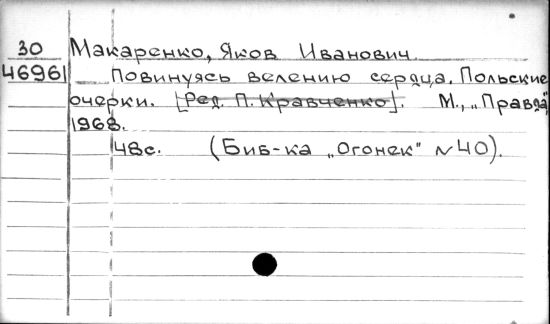 30 Макаренко, Яков Иванович.
46961 Повинуясь велению сердца. Польские
очерки. [Ред. П. Кравченко]. М., „Правда",
1968.
48с. (Биб-ка „Огонек" №40).